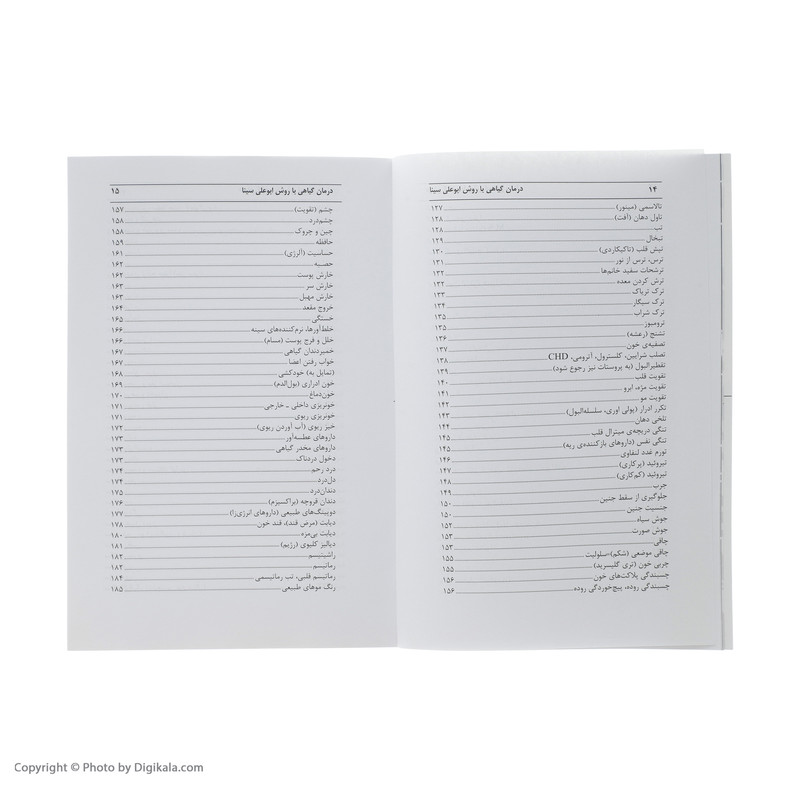 ۱۴ درمان گیاهی با روش ابوعلی سینا
تالاسمی (مینور) ۱۲۷
تاول دهان (آفت) ۱۲۸
تب ۱۲۸
تبخال ۱۲۹
تپش قلب (تاکیکاردی) ۱۳۰
ترس، ترس از نور ۱۳۱
ترشحات سفید خانم‌ها ۱۳۲
ترش کردن معده ۱۳۲
ترک تریاک ۱۳۳
ترک سیگار ۱۳۴
ترک شراب ۱۳۵
ترومبوز ۱۳۵
تشنج (رعشه) ۱۳۶
تصفیه‌ی خون ۱۳۷
تصلب شرایین، کلسترول، آترومی، CHD ۱۳۸
تقطیرالبول (به پروستات نیز رجوع شود) ۱۳۹
تقویت قلب ۱۴۰
تقویت مژه، ابرو ۱۴۱
تقویت مو ۱۴۲
تکرر ادرار (پولی اوری، سلسله‌البول) ۱۴۳
تلخی دهان ۱۴۴
تنگی دریچه‌ی میترال قلب ۱۴۵
تنگی نفس (داروهای بازکننده‌ی ریه) ۱۴۵
تورم غدد لنفاوی ۱۴۶
تیروئید (پرکاری) ۱۴۷
تیروئید (کم‌کاری) ۱۴۸
جرب ۱۴۹
جلوگیری از سقط جنین ۱۵۰
جنسیت جنین ۱۵۰
جوش سیاه ۱۵۲
جوش صورت ۱۵۳
چاقی ۱۵۳
چاقی موضعی (شکم)-سلولیت ۱۵۵
چربی خون (تری گلیسرید) ۱۵۵
چسبندگی پلاکت‌های خون ۱۵۶
چسبندگی روده، پیچ‌خوردگی روده ۱۵۶
درمان گیاهی با روش ابوعلی سینا ۱۵
چشم (تقویت) ۱۵۷
چشم‌درد ۱۵۸
چین و چروک ۱۵۸
حافظه ۱۵۹
حساسیت (آلرژی) ۱۶۱
حصبه ۱۶۲
خارش پوست ۱۶۲
خارش سر ۱۶۳
خارش مهبل ۱۶۳
خروج مقعد ۱۶۴
خستگی ۱۶۵
خلط‌آورها، نرم‌کننده‌های سینه ۱۶۶
خلل و فرج پوست (مسام) ۱۶۶
خمیردندان گیاهی ۱۶۷
خواب رفتن اعضا ۱۶۷
(تمایل به) خودکشی ۱۶۸
خون ادراری (بول‌الدم) ۱۶۹
خون‌دماغ ۱۷۰
خونریزی داخلی ـ خارجی ۱۷۱
خونریزی ریوی ۱۷۱
خیز ریوی (آب آوردن ریوی) ۱۷۲
داروهای عطسه‌آور ۱۷۳
داروهای مخدر گیاهی ۱۷۳
دخول دردناک ۱۷۳
درد رحم ۱۷۴
دل‌درد ۱۷۴
دندان‌درد ۱۷۵
دندان قروچه (براکسیزم) ۱۷۶
دوپینگ‌های طبیعی (داروهای انرژی‌زا) ۱۷۷
دیابت (مرض قند)، قند خون ۱۷۸
دیابت بی‌مزه ۱۸۰
دیالیز کلیوی (رژیم) ۱۸۱
راشیتیسم ۱۸۲
رماتیسم ۱۸۲
رماتیسم قلبی، تب رماتیسمی ۱۸۴
رنگ موهای طبیعی ۱۸۵
Copyright © Photo by Digikala.com